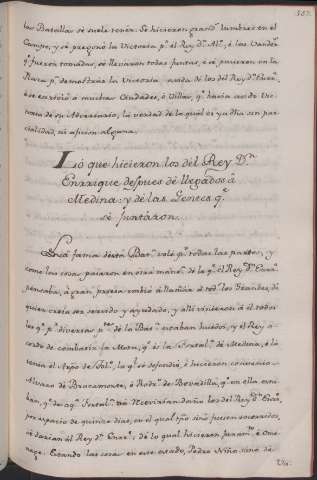 las Batallas se suele tener. Se hicieron grandes lumbres en el
Campo, y se pregonó la Victoria pr. el Rey Dn. Alo., è las Vander.s
qe. fueron tomadas, se llevaron todas juntas, è se pusieron en la
Plaza pa. demostrar la Victoria havida de los del Rey Dn. Enrre.
è se escrivió a muchas Ciudades, è Villas, qe. havia havido Vic
toria de su Adversario, la verdad de lo qual es ya dha sin par
cialidad, ni aficion alguna.
Lo que hicieron los del Rey Dn.
Enrrique despues de llegados à
Medina: y de las Gentes qe.
se juntaron.
fama desta Batalla voló pr. todas las partes, y
como las cosas pasaron en otra manera. de lo qe. el Rey Dn. Enrre.
pensaba, à gran priesa embió à llamar à todos los Grandes, de
quien creia ser servido y ayudado, y alli vinieron à èl todos
los qe. pr. diversas ptes. de la Batalla estaban huidos, y el Rey a
cordó de combatir la Mota, qe. es la Fortaleza de Medina, è la
tenia el Arzpo. de Toldo., la qe. se defendió, è hicieron convenio
Alvaro de Bracamonte, è Rodrigo de Bovadilla, qe. en ella esta
ban, qe. de aqa. Fortaleza. no recivirian daño los del Rey Dn. Enrre.
por espacio de quince dias, en el qual tpo. sino fuesen socorridos,
se darian al Rey Dn. Enrre.; de lo qual hicieron juramto. è ome
nage. Estando las cosas en este estado, Pedro Niño, uno de